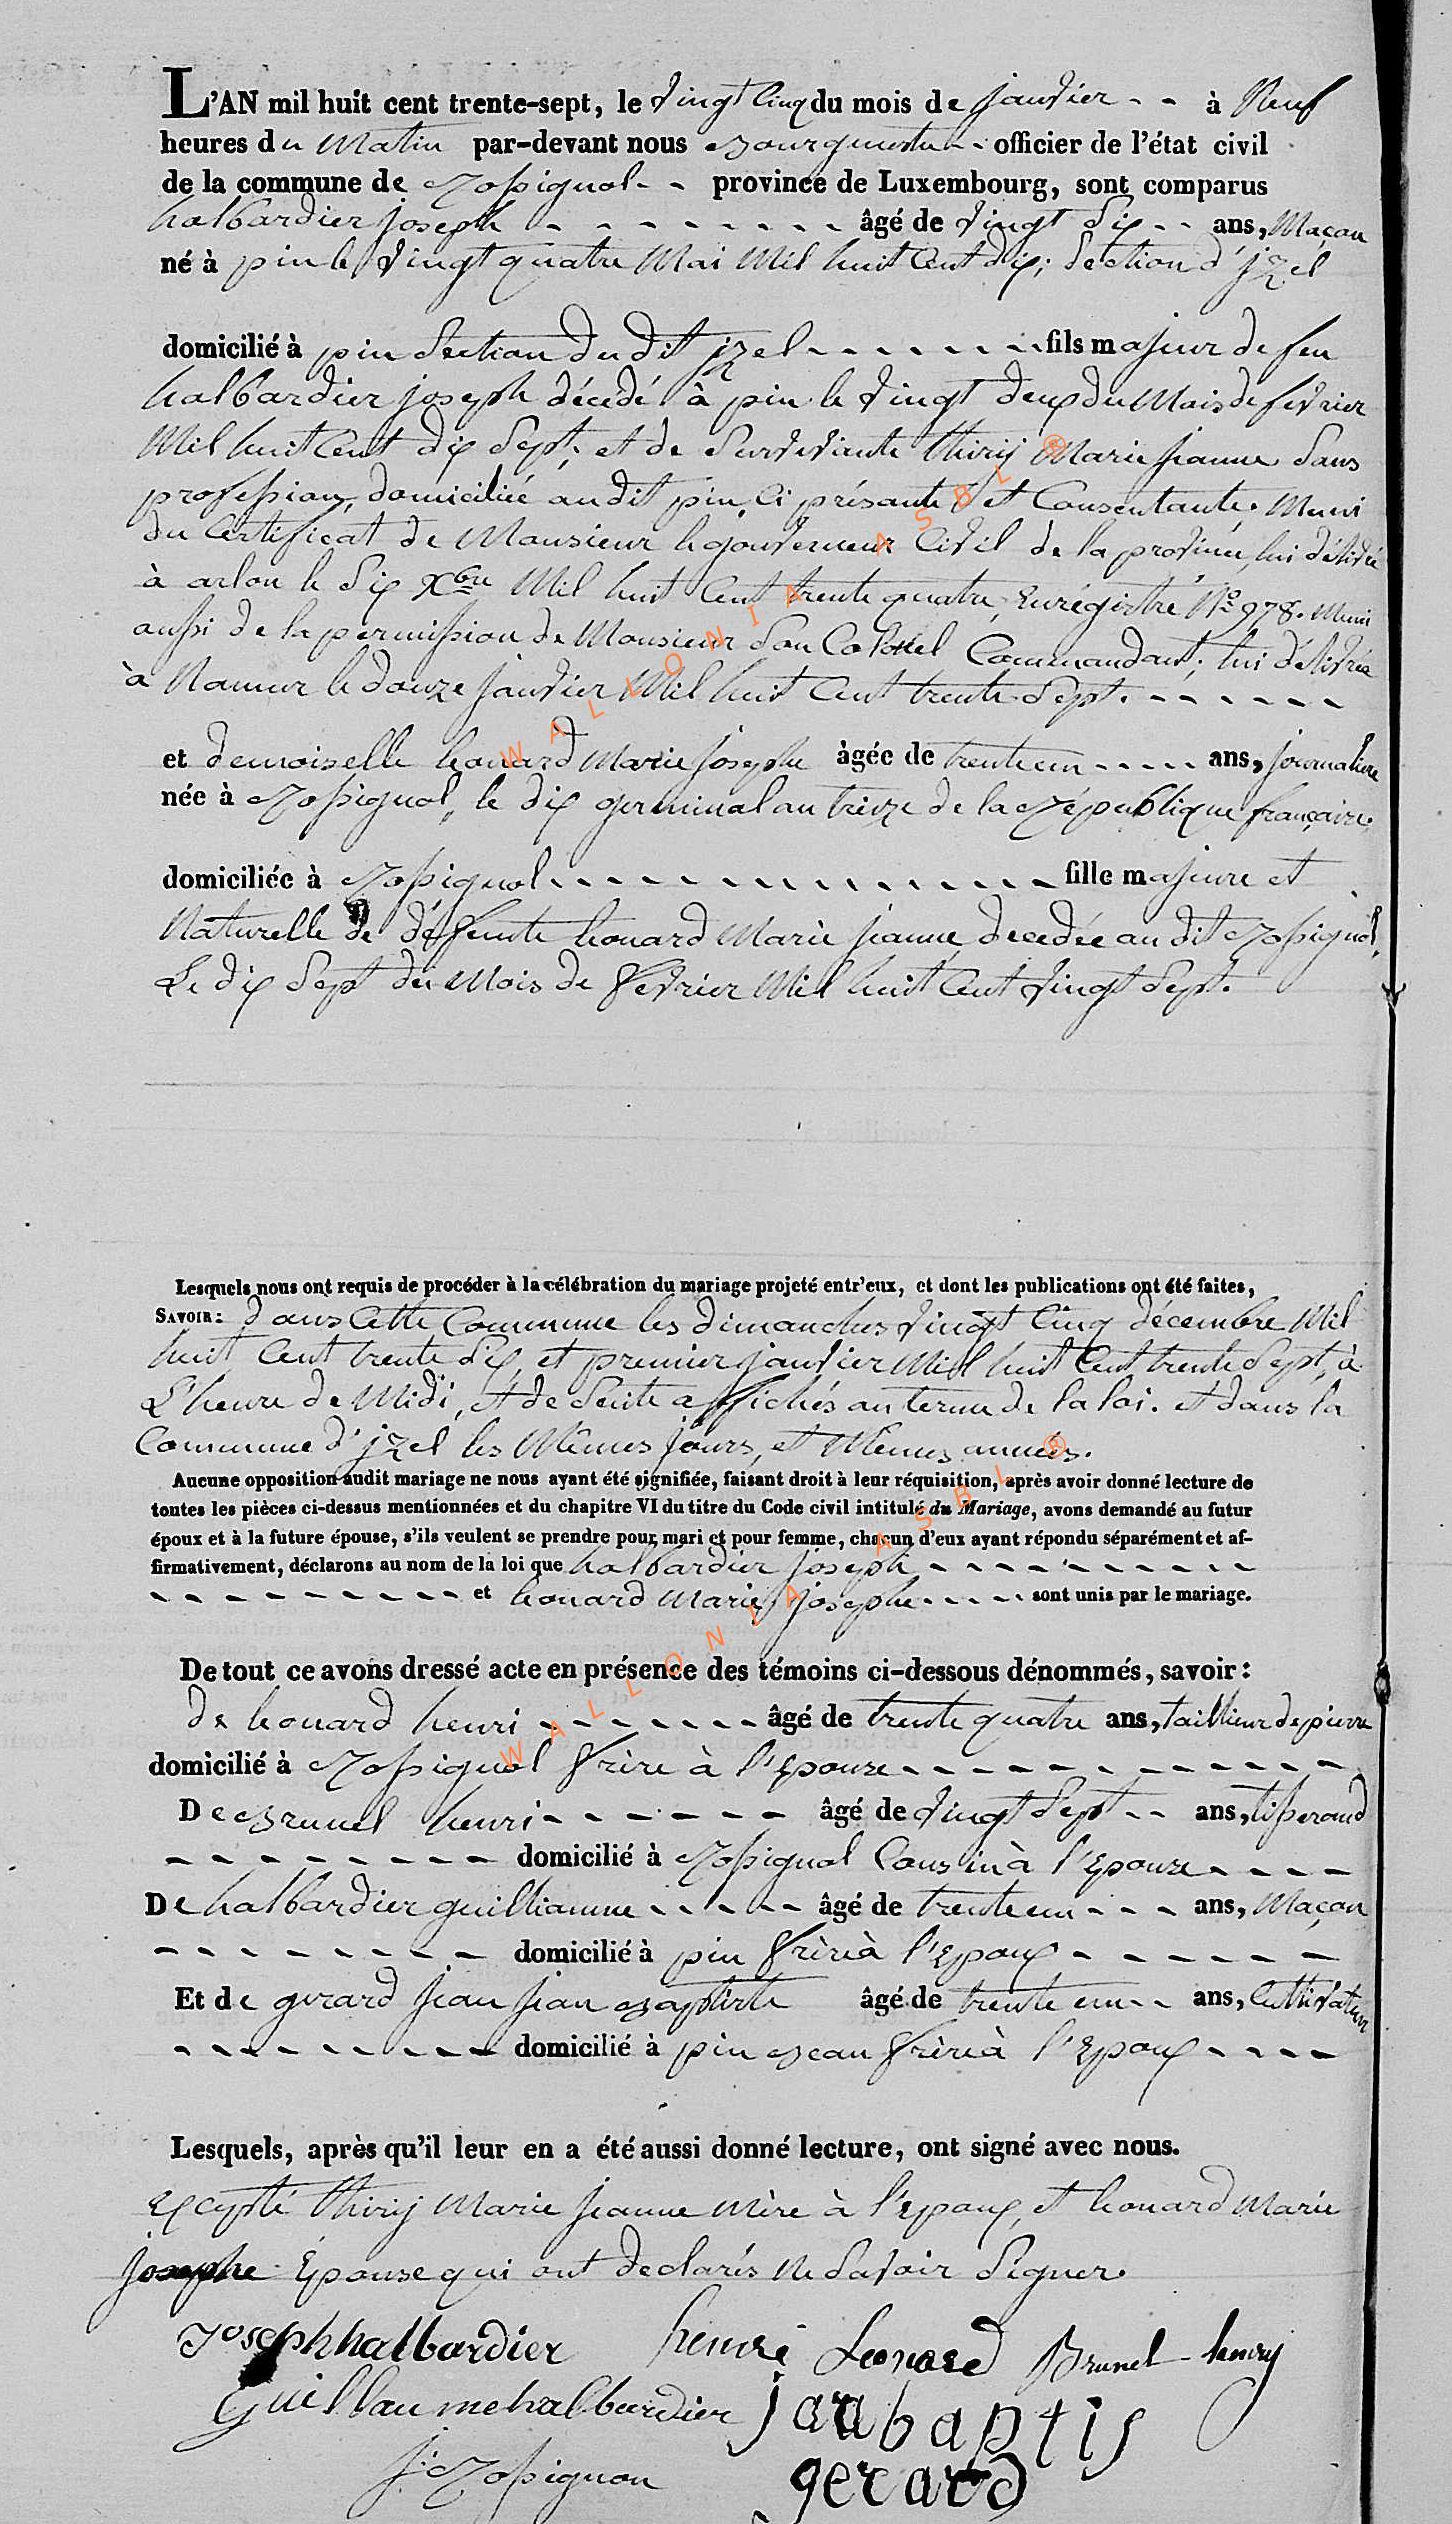 L'AN mil huit cent trente-sept, le vingt Cinq du mois de janvier - - à Neuf
heures du Matin par-devant nous Bourguemetre - officier de l'état civil
de la commune de Rossignol - - province de Luxembourg, sont comparus
halbardier joseph - - - - - - - - - âgé de vingt Six - - ans, Maçon
né à pin le vingt quatre Mai Mil huit Cent dix; Section d'jzel
domicilié à pin Section du dit jzel - - - - - - - fils majeur de feu
halbardier joseph décédé à pin le vingt deux du Mois de fevrier
Mil huit Cent dix Sept; et de Survivante thirij Marie jeanne Sans
profession, domiciliée au dit pin, Ci présante et Consentante. Muni
du Certificat de Monsieur le gouverneur Civil de la province, lui délivré
à arlon le Six Xbre Mil huit Cent trente quatre, Enrégistré No 978. Muni
aussi de la permission de Monsieur Son Colonel Commandant; lui délivrée
à Namur le douze janvier Mil huit Cent trente Sept. - - - - - -
et demoiselle leonard Marie josephe âgée de trente un - - - - - ans, journaliere
née à Rossignol, le dix germinal an treize de la République française.
domiciliée à Rossignol - - - - - - - - - - - - - - - fille majeure et
Naturelle de défeunte leonard Marie jeanne, decedée au dit Rossignol,
Le dix Sept du Mois de Fevrier Mil huit Cent vingt Sept.
Lesquels nous ont requis de procéder à la célébration du mariage projeté entr'eux, et dont les publications ont été faites,
SAVOIR: dans Cette Commune les dimanches vingt Cinq décembre Mil
huit Cent trente Six, et premier janvier Mil huit Cent trente Sept, à
L'heure de Midi, et de Seuite affichés au terme de la loi. et dans la
Commune d'jzel les Mêmes jours, et Mêmes années.
Aucune opposition audit mariage ne nous ayant été signifiée, faisant droit à leur réquisition, après avoir donné lecture de
toutes les pièces ci-dessus mentionnées et du chapitre VI du titre du Code civil intitulé du Mariage, avons demandé au futur
époux et à la future épouse, s'ils veulent se prendre pour mari et pour femme, chacun d'eux ayant répondu séparément et af-
firmativement, déclarons au nom de la loi que halbardier joseph - - - - - - - - - -
- - - - - - - - - - et leonard Marie josephe - - - - sont unis par le mariage.
De tout ce avons dressé acte en présence des témoins ci-dessous dénommés, savoir:
de leonard henri - - - - - - - âgé de trente quatre ans, taillieur de pierre
domicilié à Rossignol Frère à l'Epouze - - - - - - - - - - - -
De Brunel henri - - - - - - - âgé de vingt Sept - - ans, tisserand
- - - - - - - - - domicilié à Rossignol Cousin à l'Epouze - - - -
De halbardier guilliaume - - - - - âgé de trente un - - - ans, Maçon
- - - - - - - - - domicilié à pin Frère à l'Epoux - - - - - -
Et de gerard jean jean Baptiste âgé de trente un - - ans, Cultivateur
- - - - - - - - - domicilié à pin Beau Frère à l'Epoux - - - -
Lesquels, après qu'il leur en a été aussi donné lecture, ont signé avec nous.
Excepté thirij Marie jeanne Mère à l'Epoux, et leonard Marie
josephe Epouse qui ont declarés Ne Savoir Signer.
Joseph halbardier henri Leonard Brunel henry
Guillaume halbardier jan baptis
J: Rossignon gerard
WALLONIA ASBL ®
WALLONIA ASBL ®